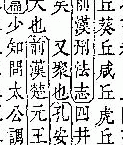 丘葵丘咸丘虎丘
前漢刑法志四井
矣　又聚也孔安
大也前漢楚元王
篇少知問太公調